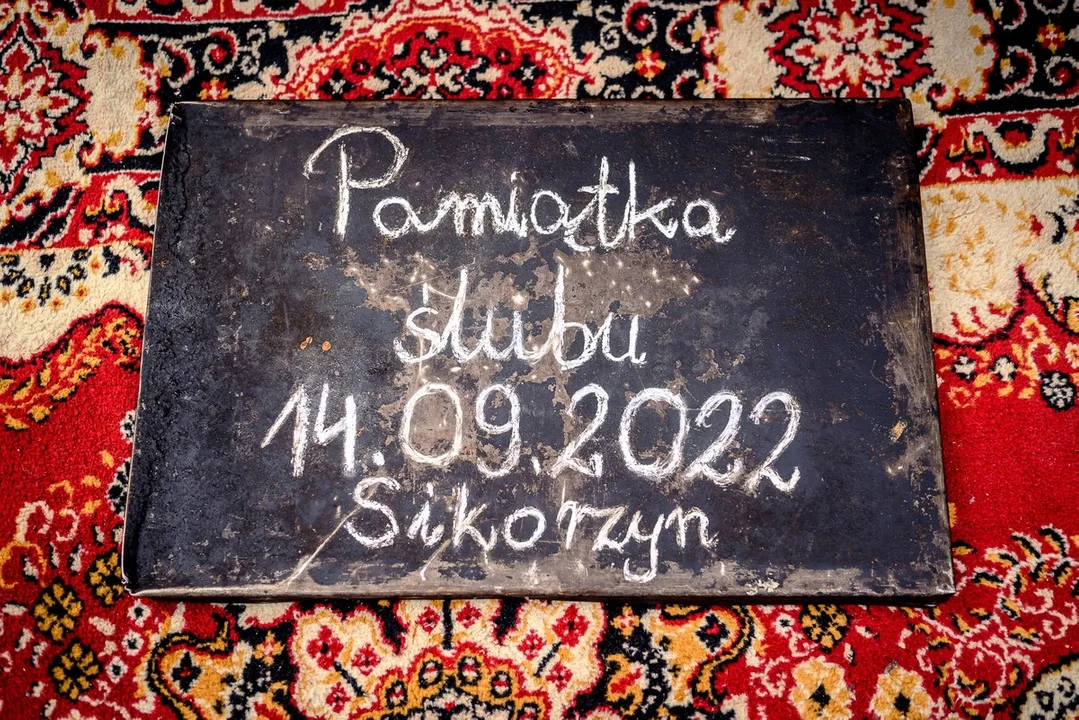 Pamiątka
ślubu
14.09.2022
Sikorzyn